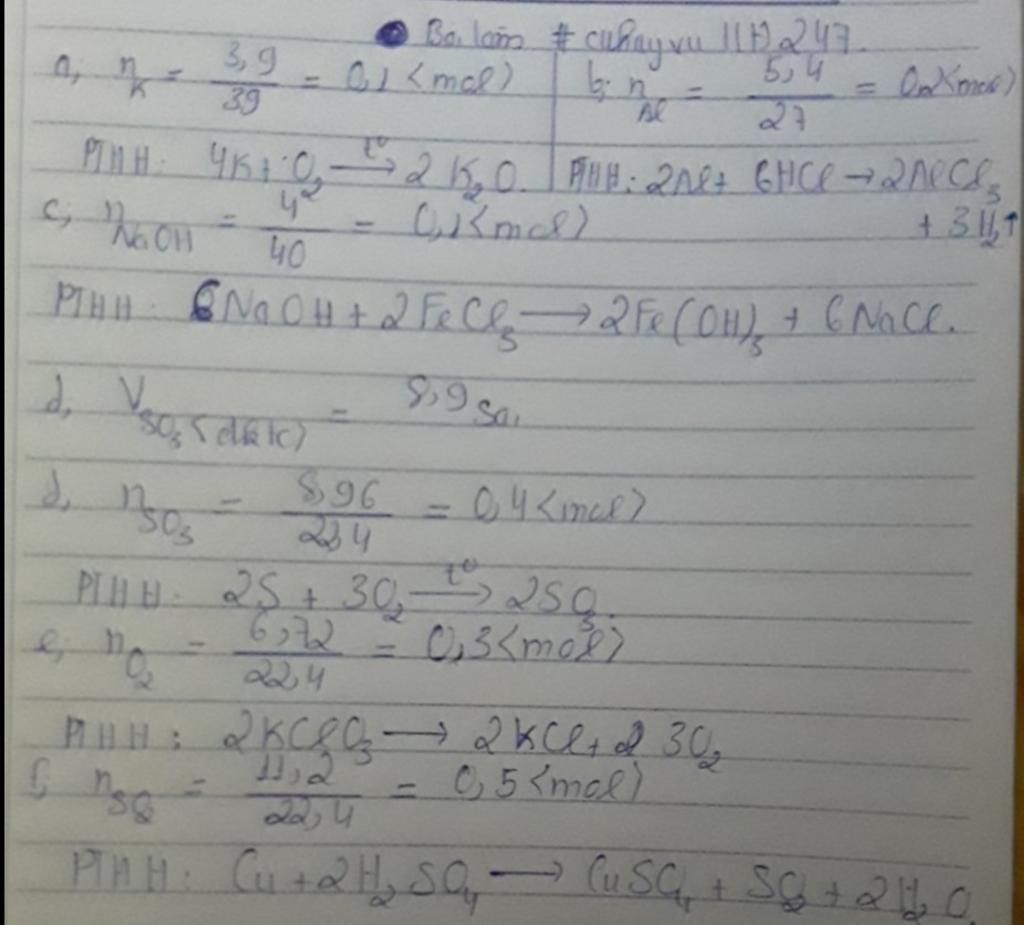 Bài làm # cuhayvu11t)247.
a; n_K = 3,9/39 = 0,1<mol) b; n_Al = 5,4/27 = 0,2<mol)
PTHH: 4K + O₂ -t°-> 2K₂O. PTHH: 2Al + 6HCl → 2AlCl₃
c; n_NaOH = 4/40 = 0,1<mol) + 3H₂↑
PTHH: 6NaOH + 2FeCl₃ → 2Fe(OH)₃ + 6NaCl.
d, V_SO₃<đktc) = 8,9
d, n_SO₃ = 8,96/22,4 = 0,4<mol)
PTHH: 2S + 3O₂ -t°-> 2SO₃.
e; n_O₂ = 6,72/22,4 = 0,3<mol)
PTHH: 2KClO₃ → 2KCl + 2 3O₂
f; n_SO₂ = 11,2/22,4 = 0,5<mol)
PTHH: Cu + 2H₂SO₄ → CuSO₄ + SO₂ + 2H₂O.